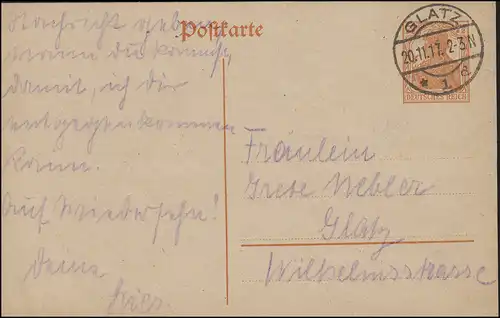 Postkarte
GLATZ
20.11.17. 2-3.N
* 1 d
DEUTSCHES REICH
Nachricht geben
wann du kommst,
damit, ich dir
entgegenkommen
kann.
Auf Wiedersehn!
Deine
Fräulein
Grete Nebler
Glatz
Wilhelmsstrasse